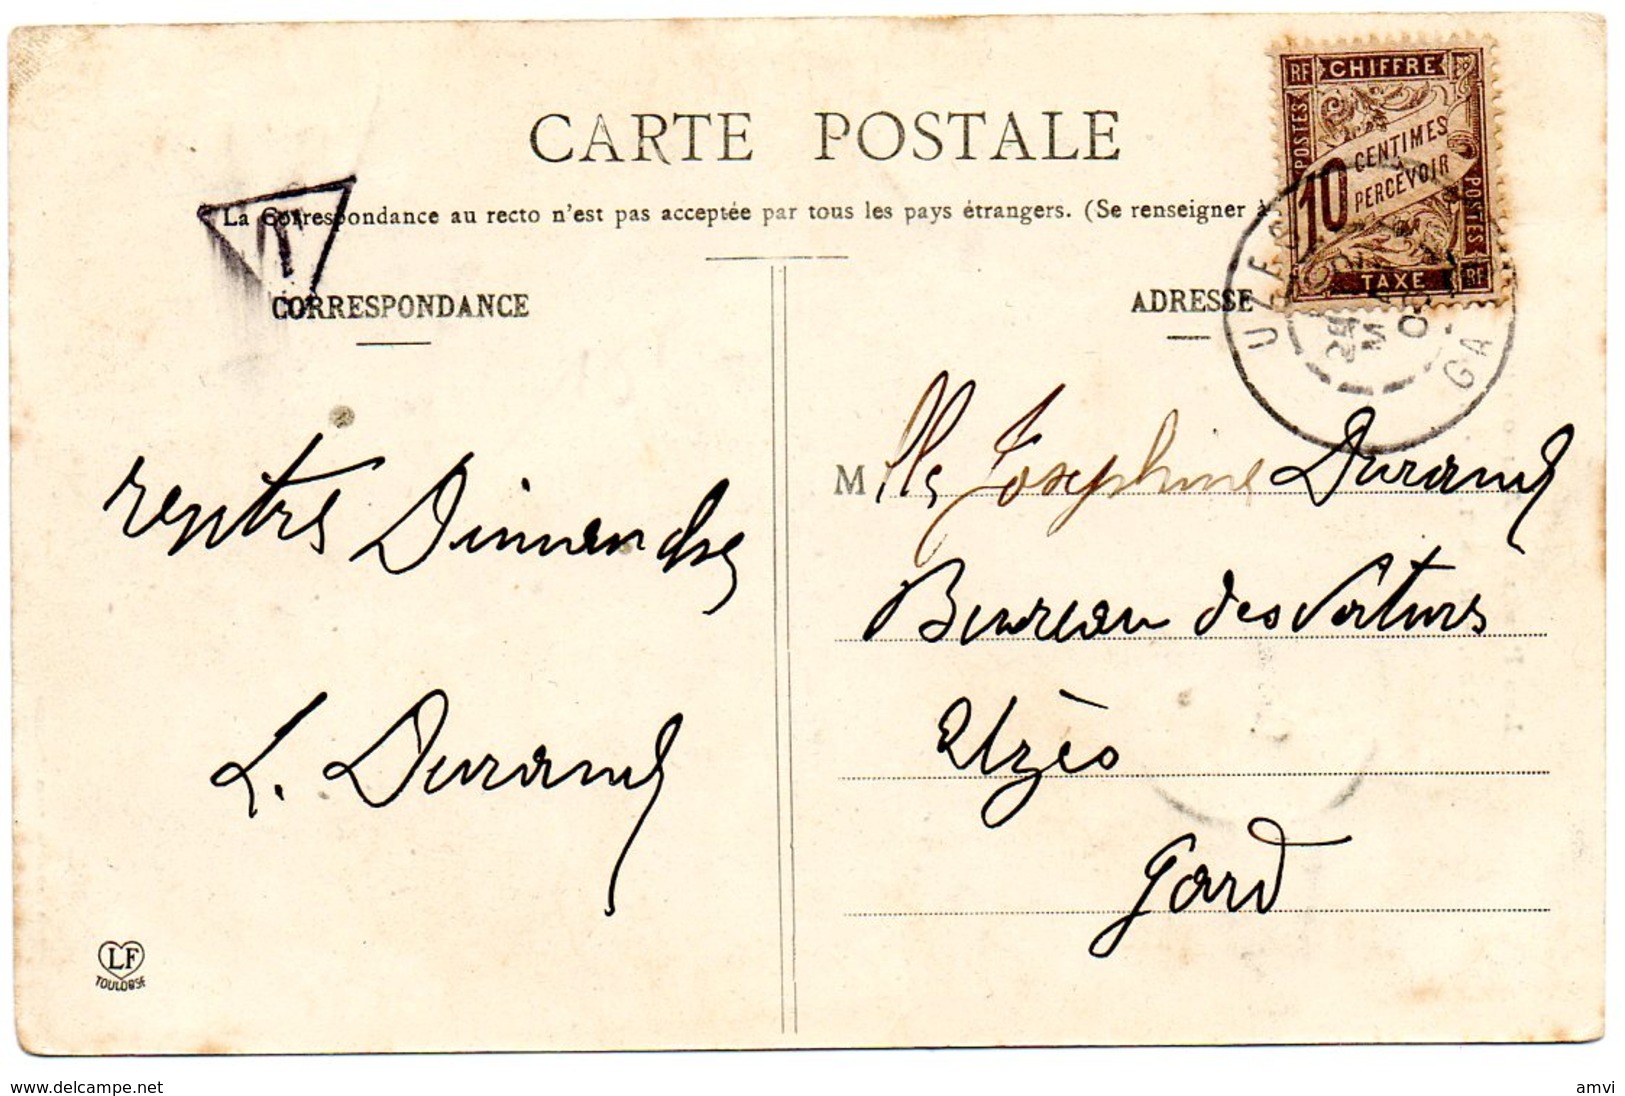 CARTE POSTALE
La Correspondance au recto n'est pas acceptée par tous les pays étrangers. (Se renseigner à
T
CORRESPONDANCE
ADRESSE
RF CHIFFRE
POSTES
10 CENTIMES
PERCEVOIR
POSTES
TAXE RF
UZES
GA
rentre Dimanche
L. Durand
Mlle Josephine Durand
Bureau des Voitures
Uzès
Gard
LF
TOULOUSE
www.delcampe.net
amvi